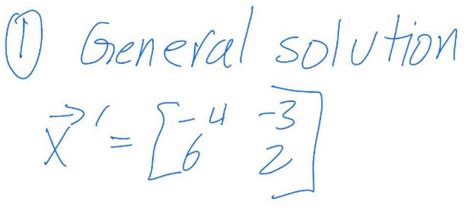 ① General solution
x⃗' = [-4 -3
6 2]